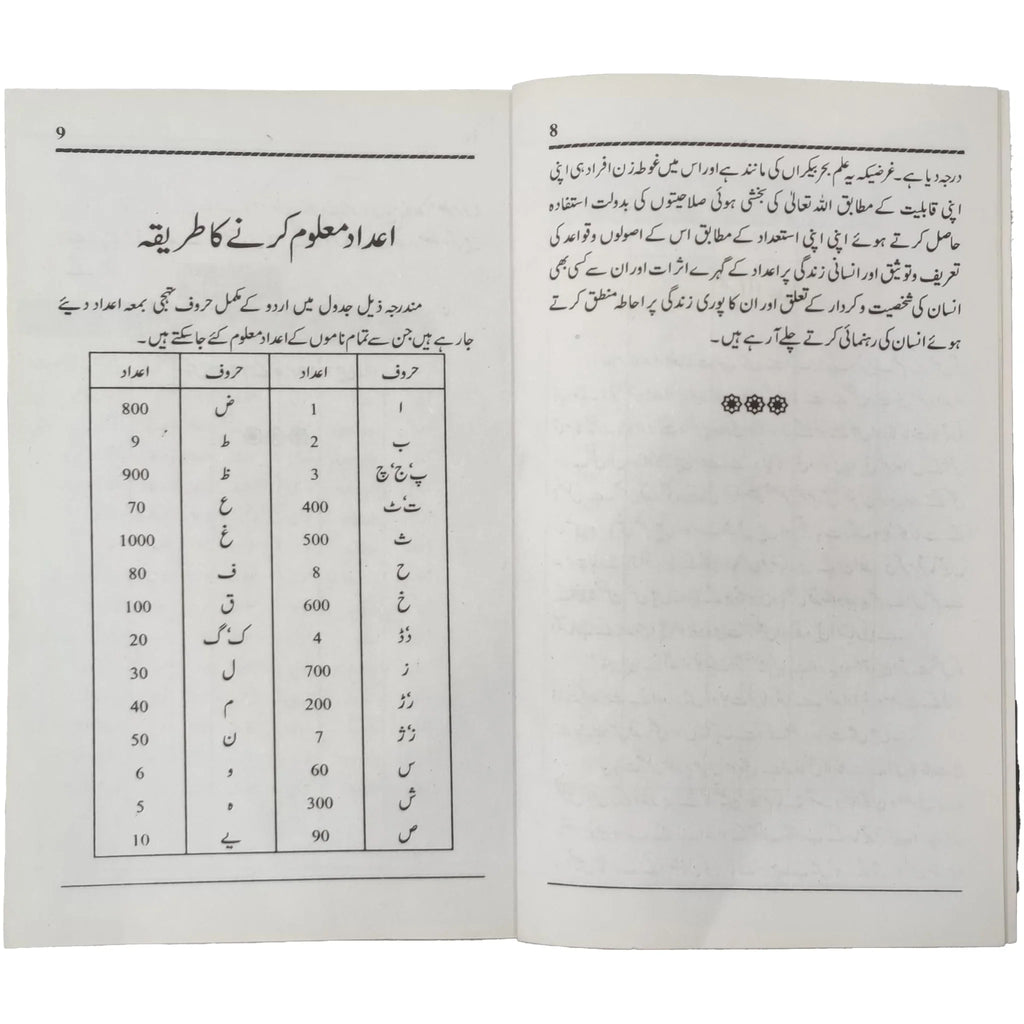 8
درجہ دیا ہے۔ غرضیکہ یہ علم بحر بیکراں کی مانند ہے اور اس میں غوطہ زن افراد ہی اپنی
اپنی قابلیت کے مطابق اللہ تعالیٰ کی بخشی ہوئی صلاحیتوں کی بدولت استفادہ
حاصل کرتے ہوئے اپنی اپنی استعداد کے مطابق اس کے اصولوں و قواعد کی
تعریف و توثیق اور انسانی زندگی پر اعداد کے گہرے اثرات اور ان سے کسی بھی
انسان کی شخصیت و کردار کے تعلق اور ان کا پوری زندگی پر احاطہ منطق کرتے
ہوئے انسان کی رہنمائی کرتے چلے آ رہے ہیں۔
9
اعداد معلوم کرنے کا طریقہ
مندرجہ ذیل جدول میں اردو کے مکمل حروف تہجی بمعہ اعداد دیئے
جا رہے ہیں جن سے تمام ناموں کے اعداد معلوم کئے جا سکتے ہیں۔
حروف اعداد حروف اعداد
ا 1 ض 800
ب 2 ط 9
پ، ج، چ 3 ظ 900
ت، ٹ 400 ع 70
ث 500 غ 1000
ح 8 ف 80
خ 600 ق 100
د، ڈ 4 ک، گ 20
ز 700 ل 30
ر، ڑ 200 م 40
ز، ژ 7 ن 50
س 60 و 6
ش 300 ہ 5
ص 90 یے 10